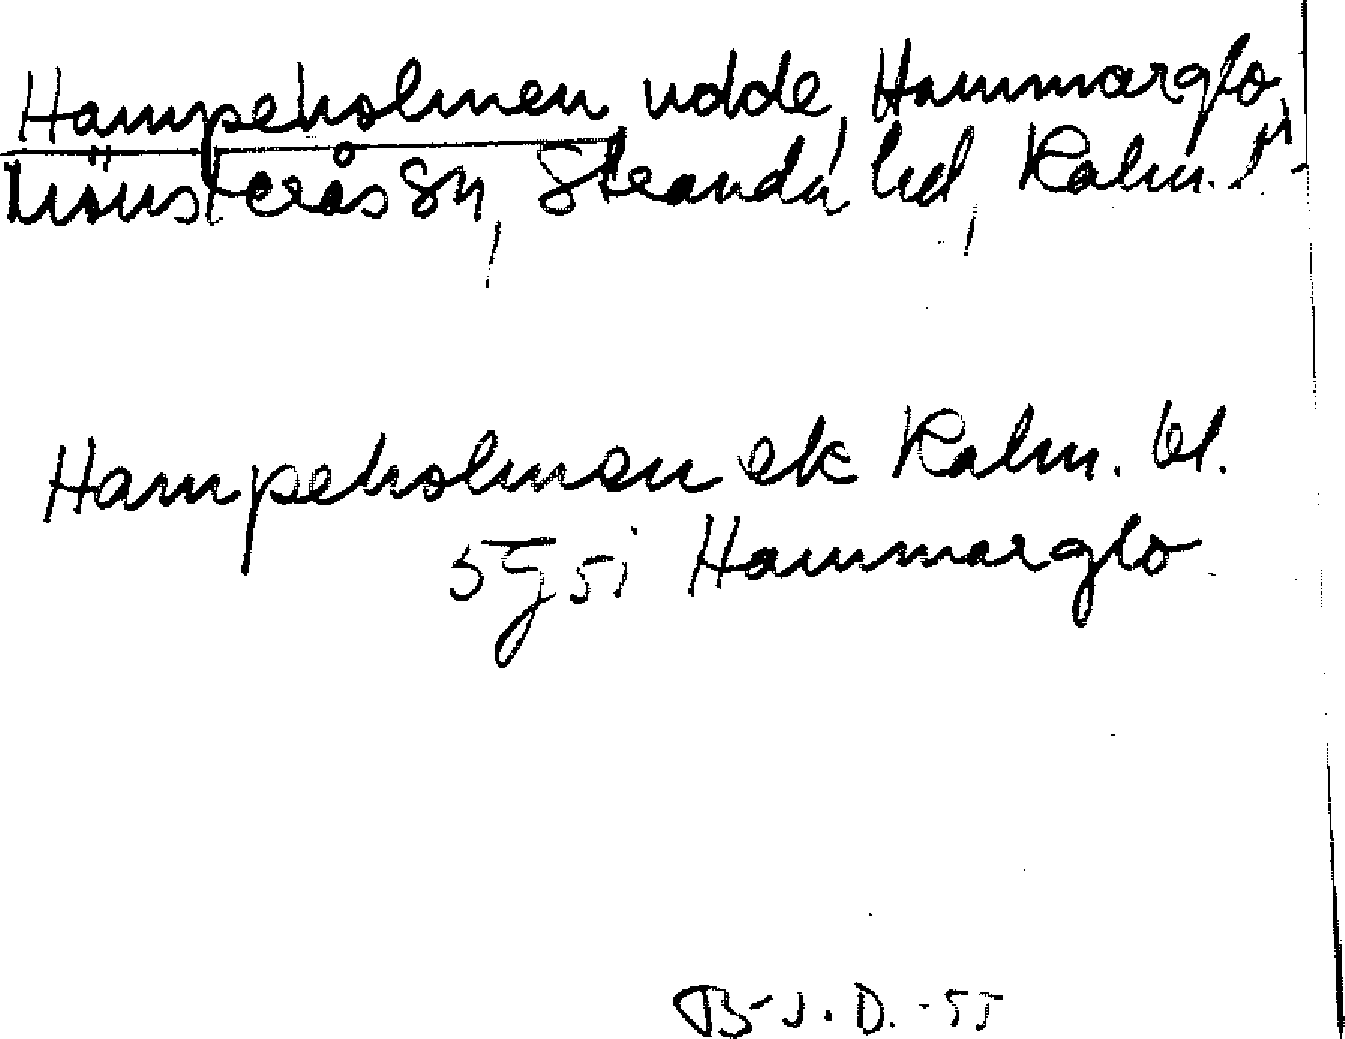 Hampeholmen, udde, Hammarglo,
Mönsterås sn, Stranda hd, Kalm. l.
Hampeholmen ek Kalm. bl.
5g5i Hammarglo
B-J. D. -55